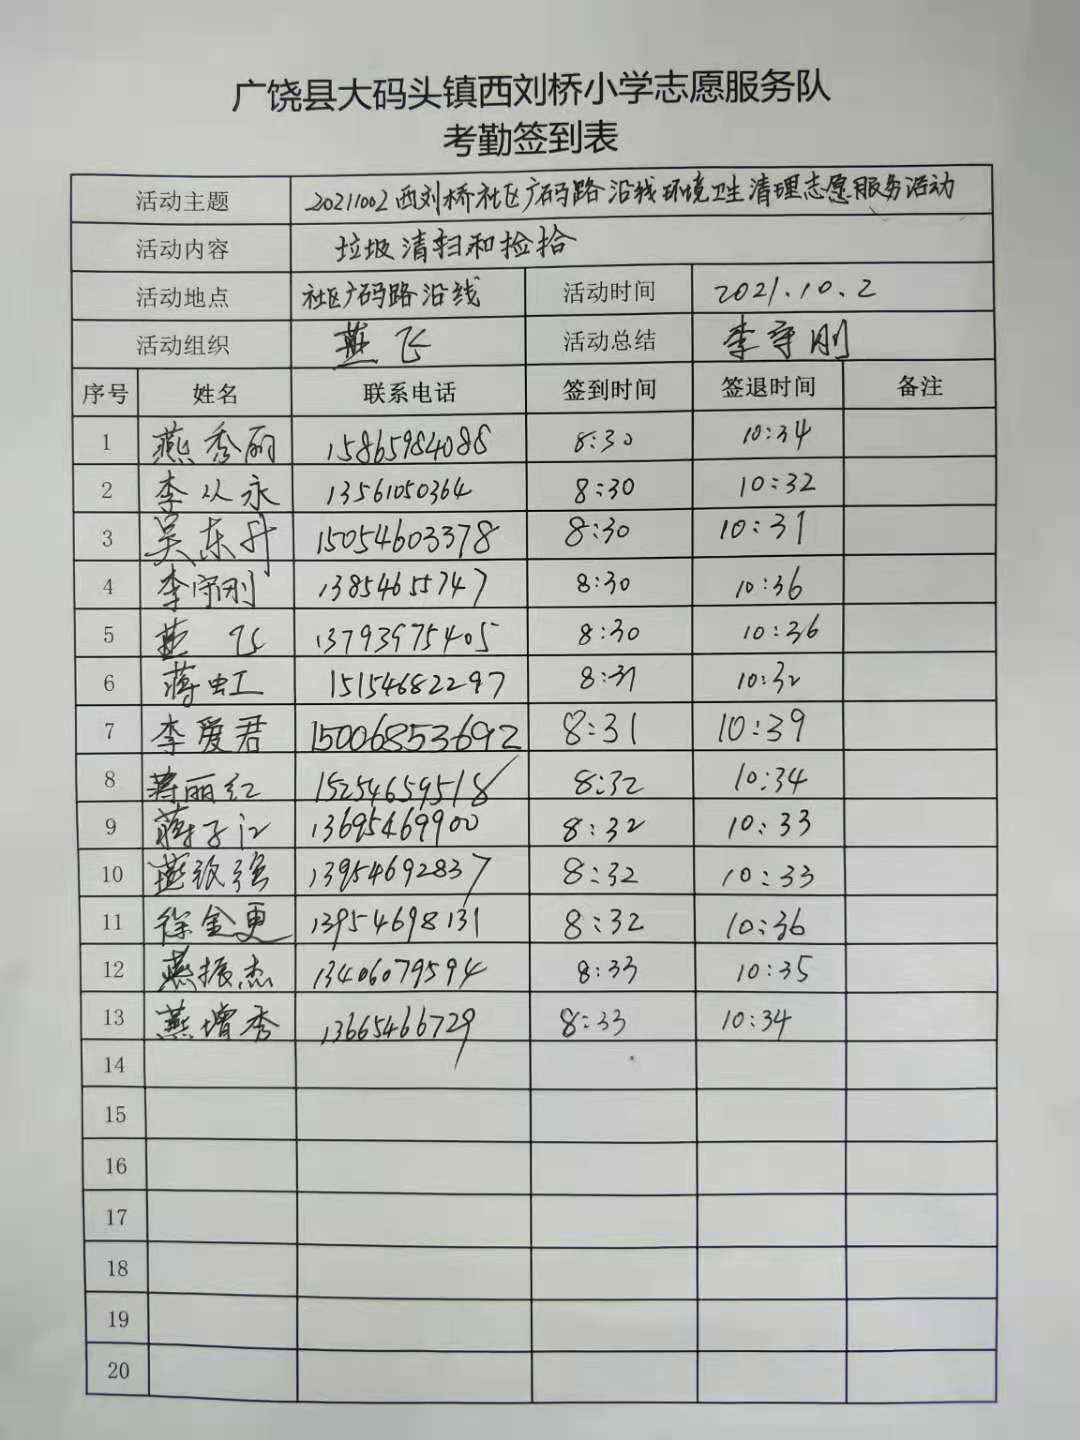 广饶县大码头镇西刘桥小学志愿服务队
考勤签到表
活动主题 20211002西刘桥社区广码路沿线环境卫生清理志愿服务活动
活动内容 垃圾清扫和捡拾
活动地点 社区广码路沿线 活动时间 2021.10.2
活动组织 燕飞 活动总结 李守刚
序号 姓名 联系电话 签到时间 签退时间 备注
1 燕秀丽 15865984088 8:30 10:34
2 李从永 13561050364 8:30 10:32
3 吴东升 15054603378 8:30 10:31
4 李守刚 13854655747 8:30 10:36
5 燕飞 13793975405 8:30 10:36
6 蒋虹 15154682297 8:31 10:32
7 李爱君 15006853692 8:31 10:39
8 蒋丽红 15254659518 8:32 10:34
9 蒋子江 13695469900 8:32 10:33
10 燕强 13954692837 8:32 10:33
11 徐金更 13954698131 8:32 10:36
12 燕振杰 13406079594 8:33 10:35
13 燕增秀 13665466729 8:33 10:34
14
15
16
17
18
19
20